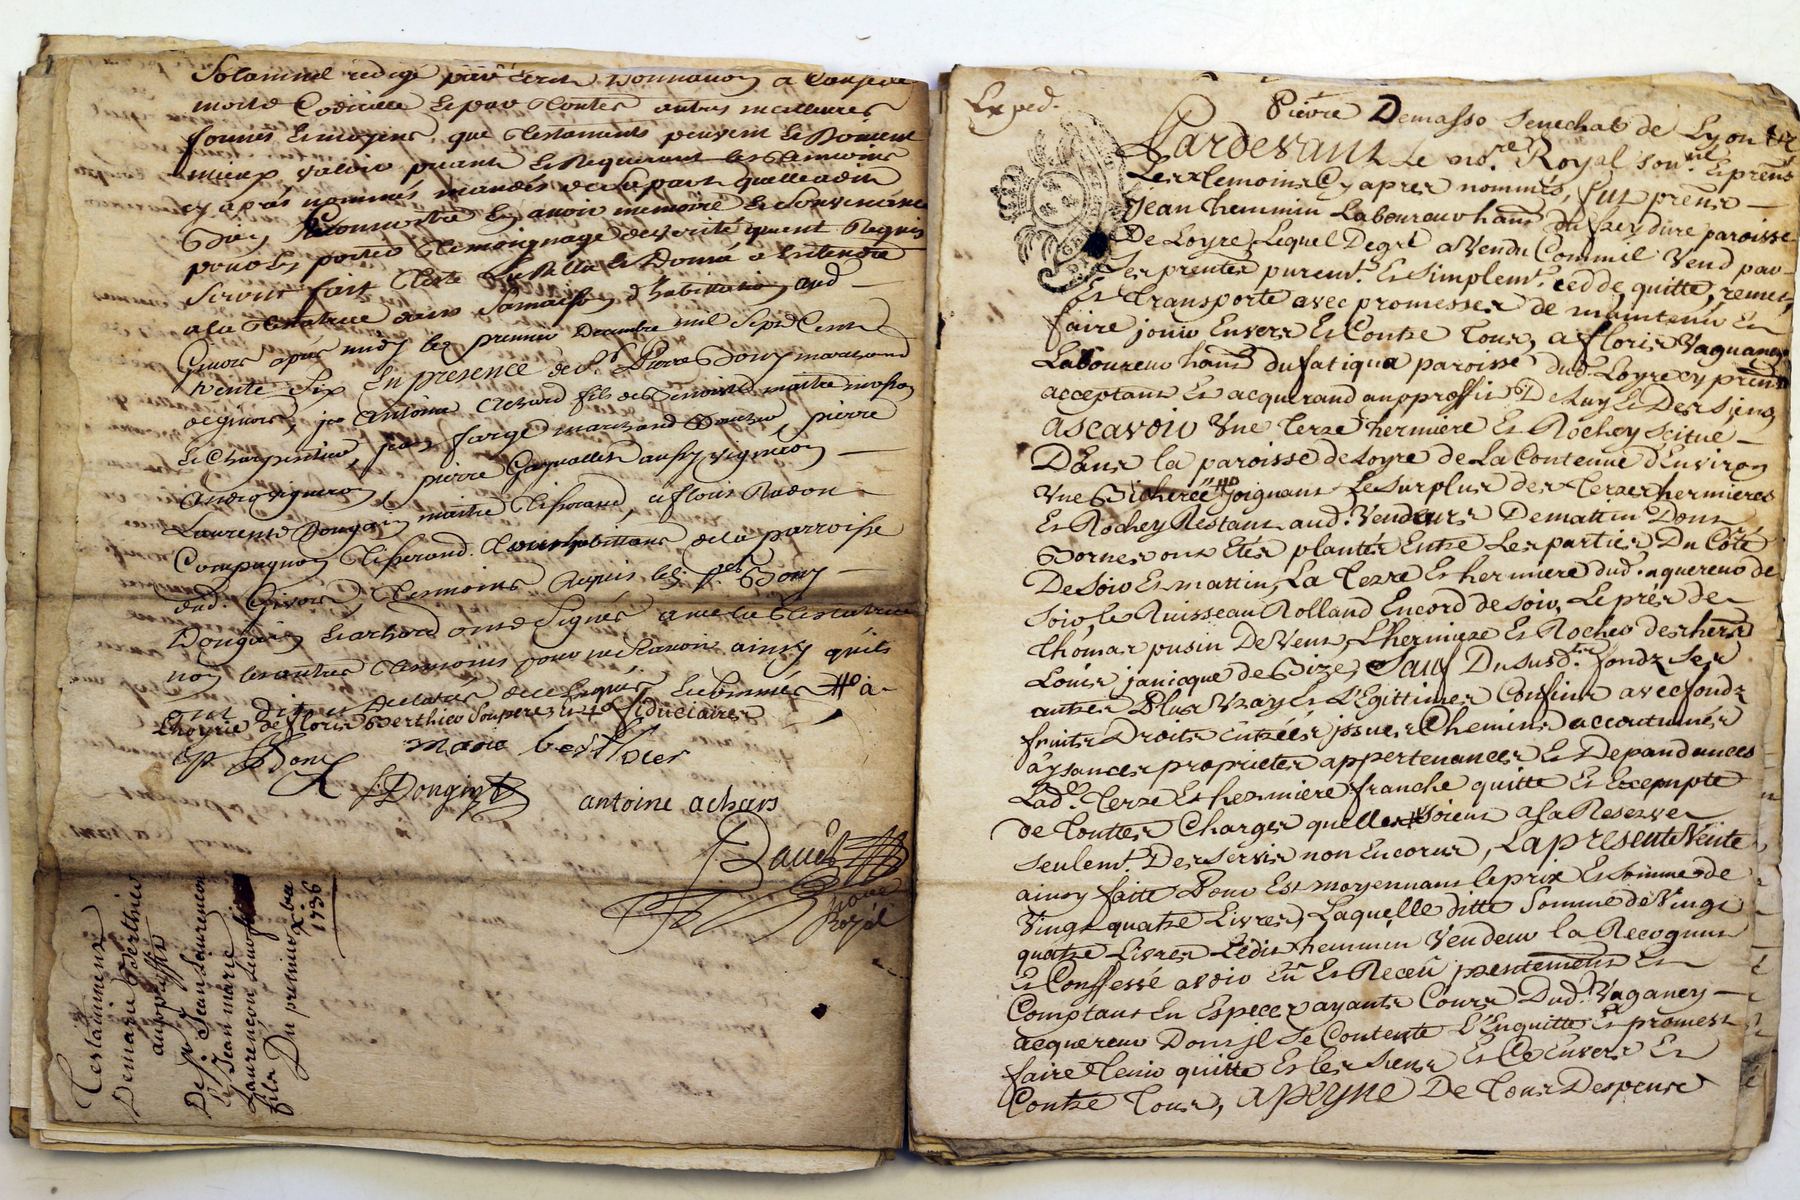 Solamnel redigé par écrit donnaon a cause de
mort Codicille et par toutes autres meilleures
formes et moyens que testaments peuvent et doivent
mieux valoir priant et Requerant les temoins
cy après nommés mandés de sa part quelle a dit
bien Reconnoitre en avoir memoire et Souvenance
pour en porter temoignage de verité quent Requis
Seront fait et leu et donné a Entendre
a la testatrice dans Sa maison d'habitation aud
Givors après midy le premier Decembre mil Sept Cents
trente Six En presence de Sr Pierre Bony marchand
de givors, Antoine Achard fils de maitre masson
et charpentier, jean farge marchand pierre
vigneron, pierre aussy vigneron
Laurent Dongin maitre tisserand, a floris Radon
Compagnon tisserand tous habittans de la parroisse
dud. Givors, temoins Requis les Srs Bony
Dongin et achard ont Signés avec la testatrice
non les autres temoins pour ne sçavoir ainsy qu'ils
ont dit et declarés de ce Enquis
L'hoyrie de floris Berthier Son pere
Bony marie berthier
Dongin
antoine achars
Royal
Testamment
De marie Berthier
au proffit
De Sr Jean Laurencon
et Jean marie
Laurencon Leurs
fils
Du premier xbre
1736
Exped.
Pierre Demasso Senechal de Lyon
Pardevant Le nore Royal Sousné Et prens
Les temoins Cy apres nommés, fut prens
Jean hemmin Laboureur hant du paroisse
De Loyre, Lequel De gré a Vendu Comme il Vend par
Ses prentes purement Et Simplement, cedde, quitte, remet,
Et transporte avec promesses de maintenir Et
faire jouir Envers Et Contre tous, a floris Vaganey
Laboureur hant du fatiqua paroisse dud. Loyre cy prens
acceptant Et acquerand au proffit De Luy Et Des Siens
ascavoir Vne terre hermiere Et Rochey Scitué
Dans la paroisse de Loyre de La Contenue d'Environ
Vne Bicherée joignant Le Surplus des terres hermieres
Et Rochey Restant aud. Vendeurs De mattin Dont
Bornes ont Etés plantés Entre Les parties Du Coté
De Soir Et mattin, La terre Et hermiere dud. aquereur de
Soir, le Ruisseau Rolland Encord de Soir, Le prés de
thomas pusin De Vent, L'hermiere Et Rocher des hers
Louis janicque de Bize, Sauf Du Susd. fondz Ses
autres Plus Vrays Et L'Egittimes Confins avec fondz
fruits Droits entrées issues Chemins accoutumés
aysances proprietes appertenances Et Dependances
Lade. terre Et hermiere franche quitte Et Exempte
de touttes Charges quelles Soient a la Reserve
Seulemt. Des Servis non Encorus, La presente Vente
ainsy faitte Pour Et moyennant le prix Et Somme de
Vingt quatre Livres, Laquelle ditte Somme de Vingt
quatre Livres Ledit hemmin Vendeur la Recognu
Et Confessé avoir Eü Et Receü presentement Et
Comptant En Especes ayants Cours Dud. Vaganey
acquereur Dont il Se Contente L'Enquitte Et promest
faire tenir quitte Et les Siens Envers Et
Contre tous, a peyne De tous Despens